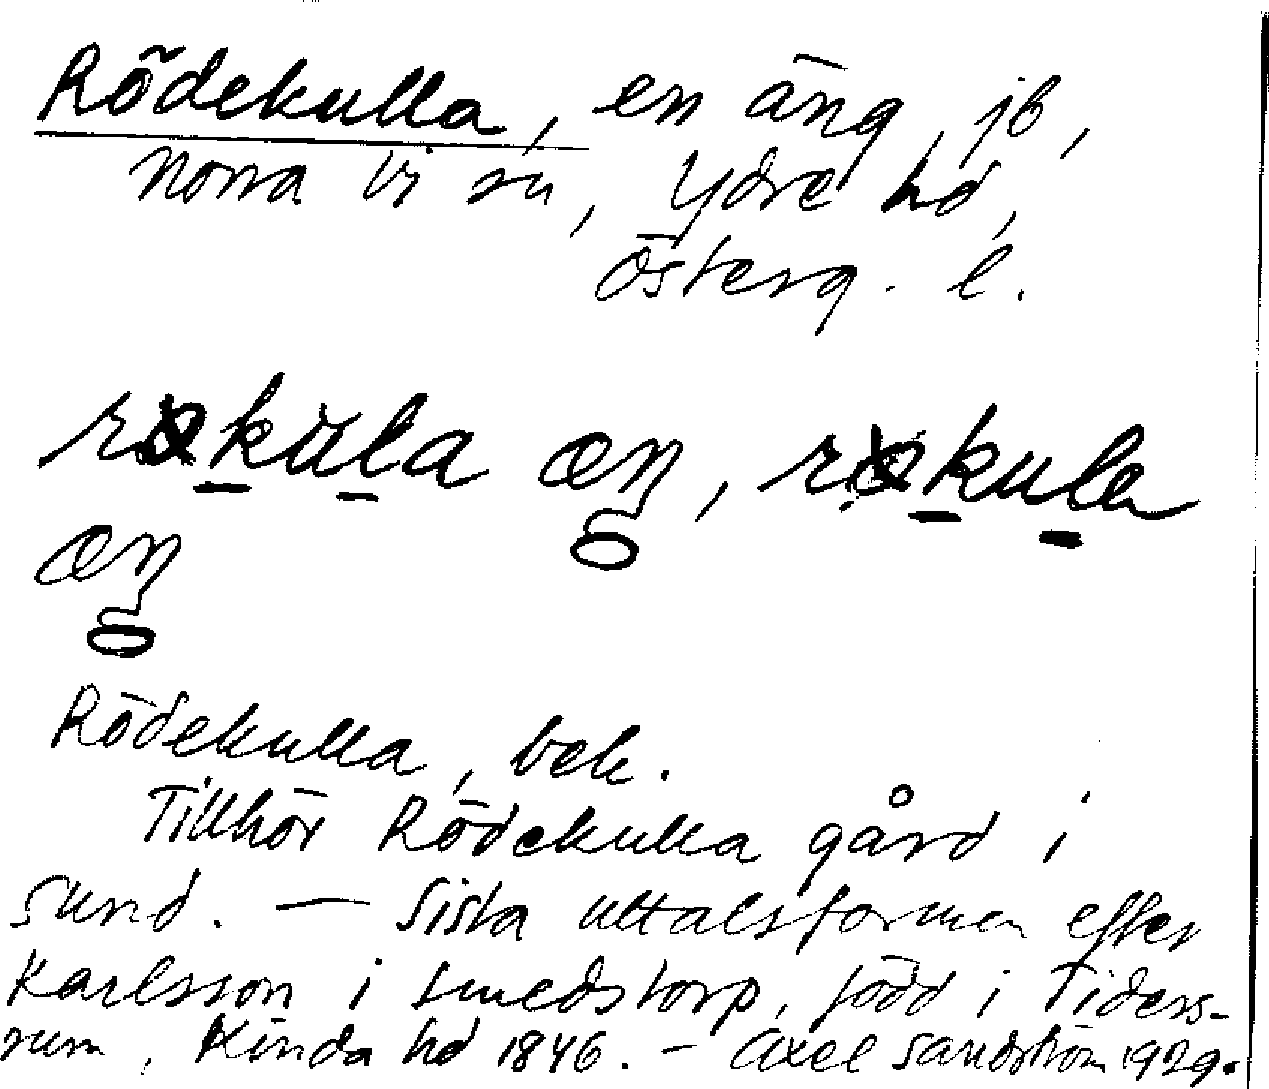 Rödekulla, en äng, jb,
Norra Vi sn, Ydre hd,
Österg. l.
Rödekulla, bek.
Tillhör Rödekulla gård i
Sund. — Sista uttalsformen efter
Karlsson i Smedstorp, född i Tiders-
rum, Kinda hd 1846. – Axel Sandström 1929.